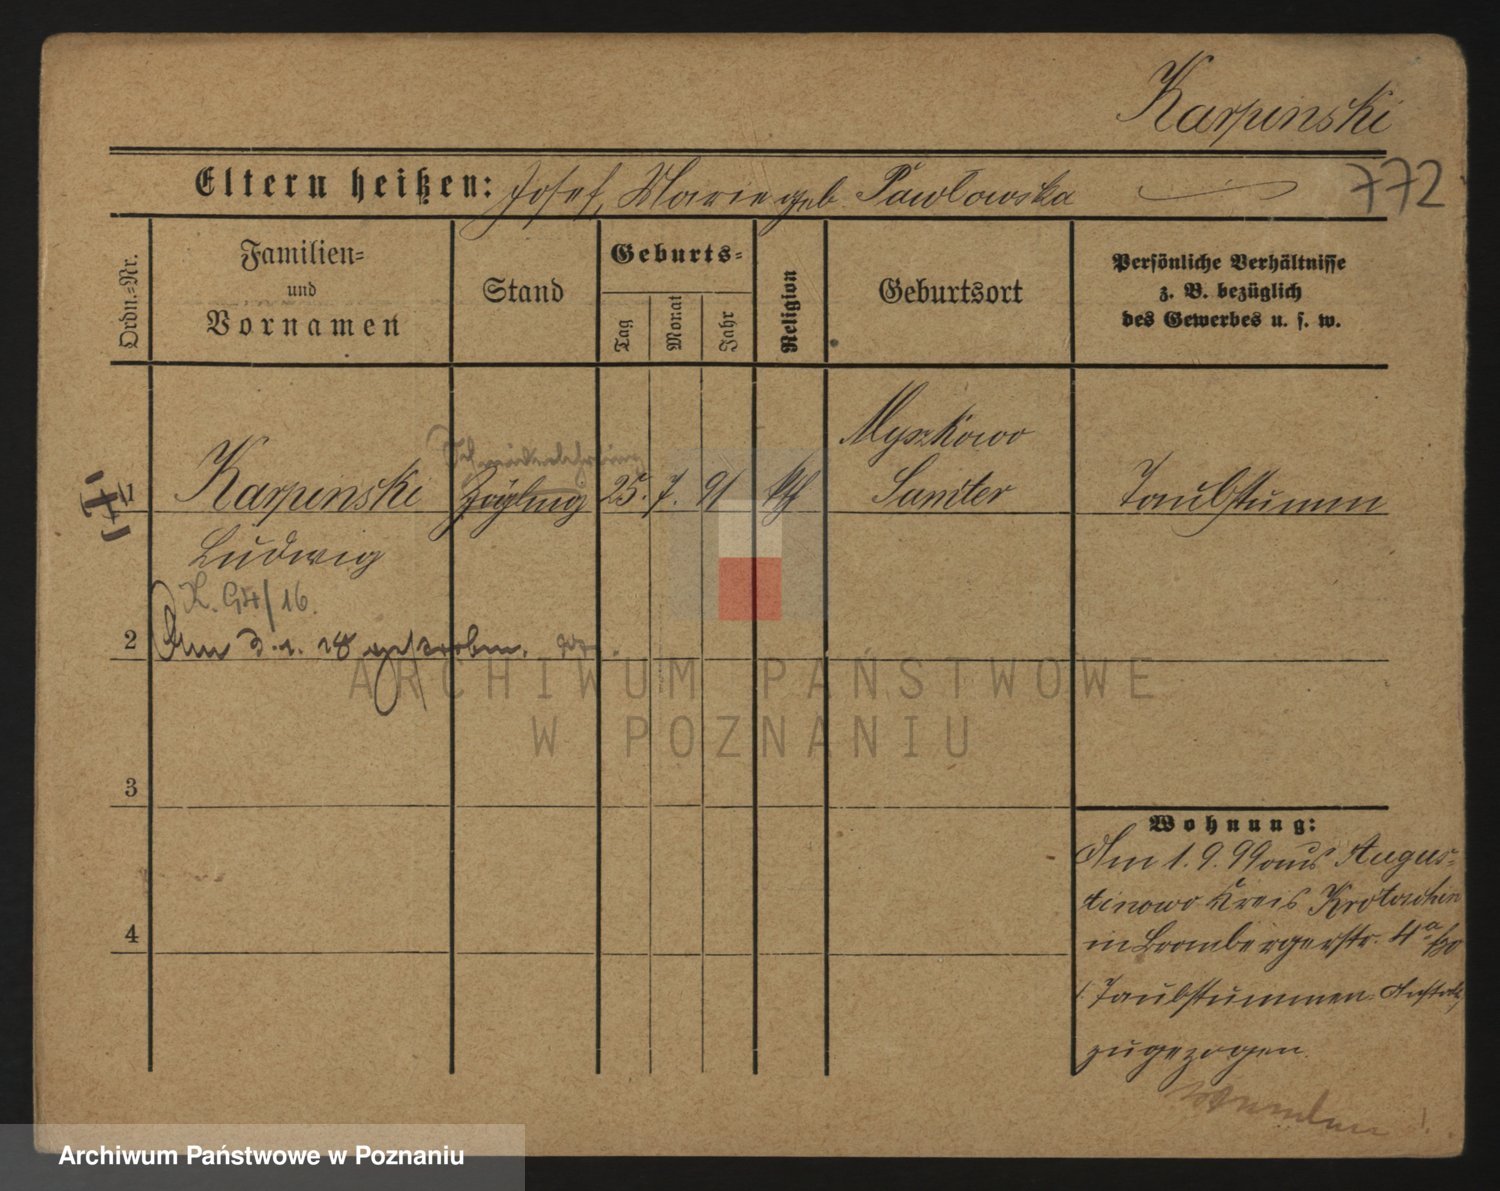 Karpinski
772
Eltern heißen: Josef, Marie geb. Pawlowska
Ordn.=Nr.
Familien=
und
Vornamen
Stand
Geburts=
Tag
Monat
Jahr
Religion
Geburtsort
Persönliche Verhältnisse
z. B. bezüglich
des Gewerbes u. s. w.
1
Karpinski
Ludwig
Schneiderlehrling
Zögling
25. 7. 91
kth
Myszkowo
Samter
Taubstumm
K. G4/16.
2
Am 3. 1. 18 gestorben.
3
4
Wohnung:
Am 1. 9. 99 aus Augus=
tinowo Kreis Krotoschin
in Brombergerstr. 4a
Taubstummen Anstalt
zugezogen.
ARCHIWUM PAŃSTWOWE
W POZNANIU
Archiwum Państwowe w Poznaniu